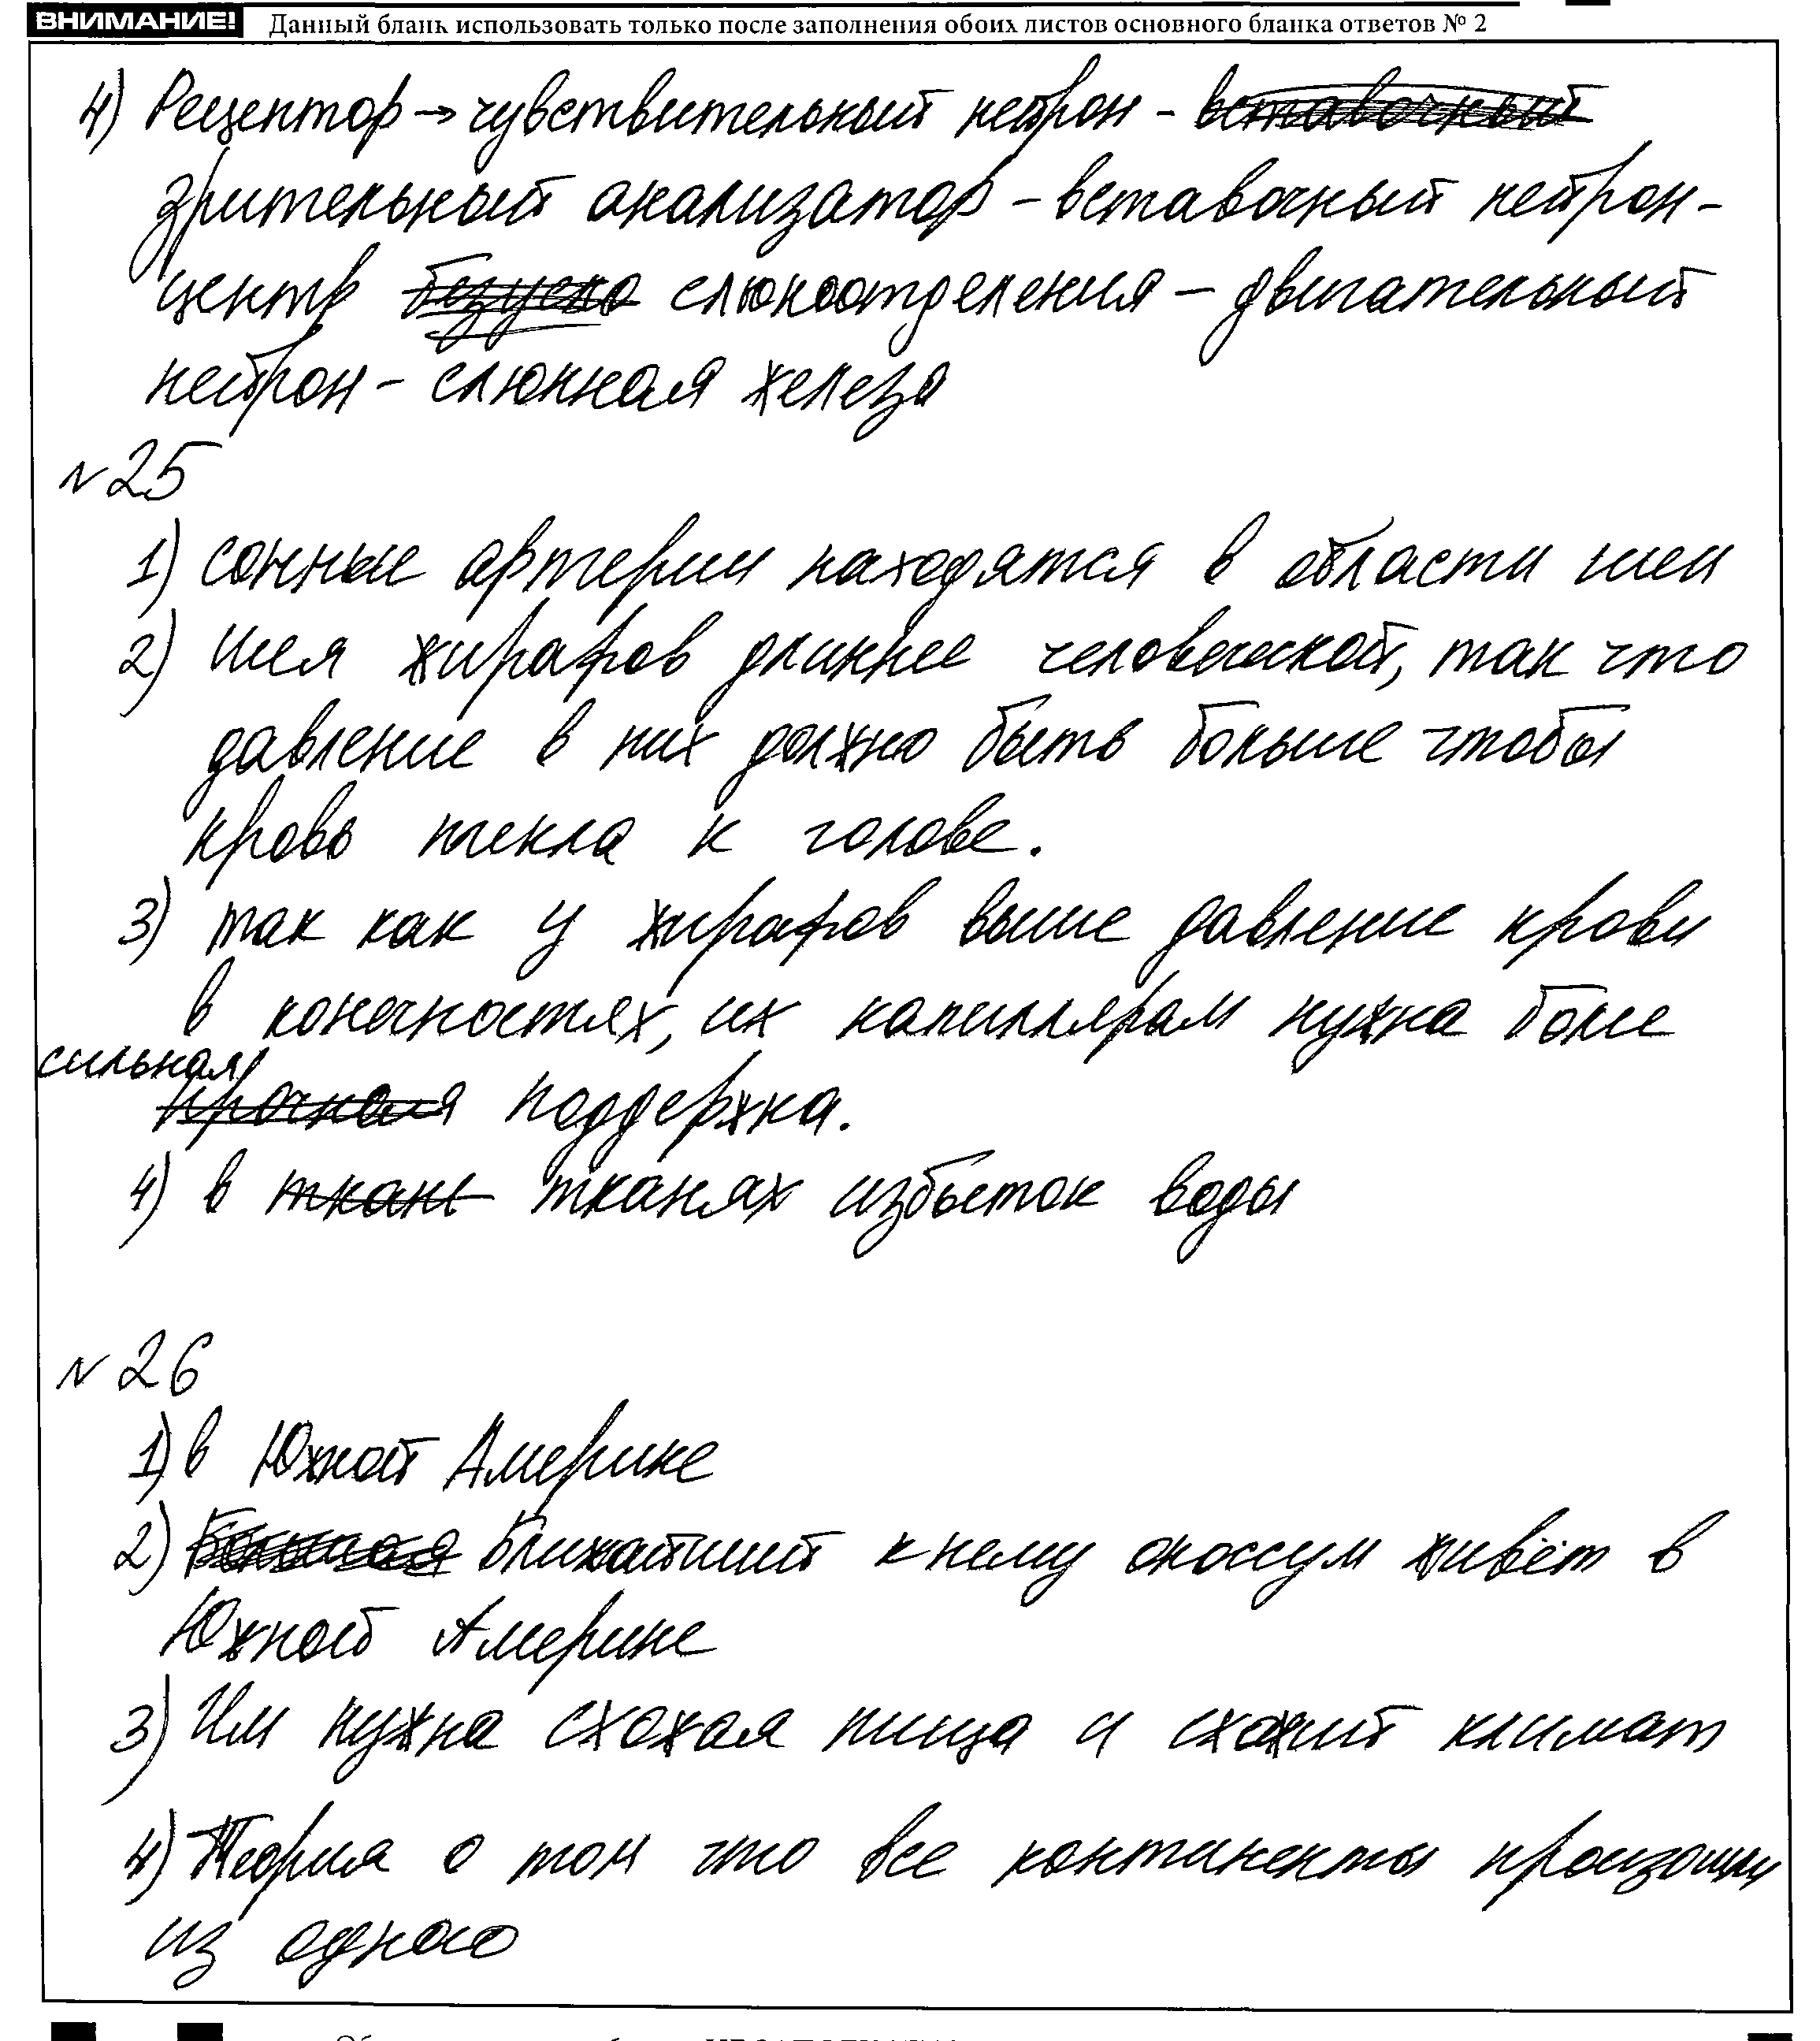 ВНИМАНИЕ! Данный бланк использовать только после заполнения обоих листов основного бланка ответов № 2
4) Рецептор → чувствительный нейрон - вставочный
зрительный анализатор - вставочный нейрон -
центр безусло слюноотделения - двигательный
нейрон - слюнная железа
№25
1) Сонные артерии находятся в области шеи
2) Шея жирафов длиннее человеческой, так что
давление в них должно быть больше чтобы
кровь текла к голове.
3) так как у жирафов выше давление крови
в конечностях, их капиллярам нужна боле
сильная
прочная поддержка.
4) в ткани тканях избыток воды
№26
1) в Южной Америке
2) Ближайший к нему опоссум живёт в
Южной Америке
3) Им нужна схожая пища и схожий климат
4) Теория о том что все континенты произошли
из одного